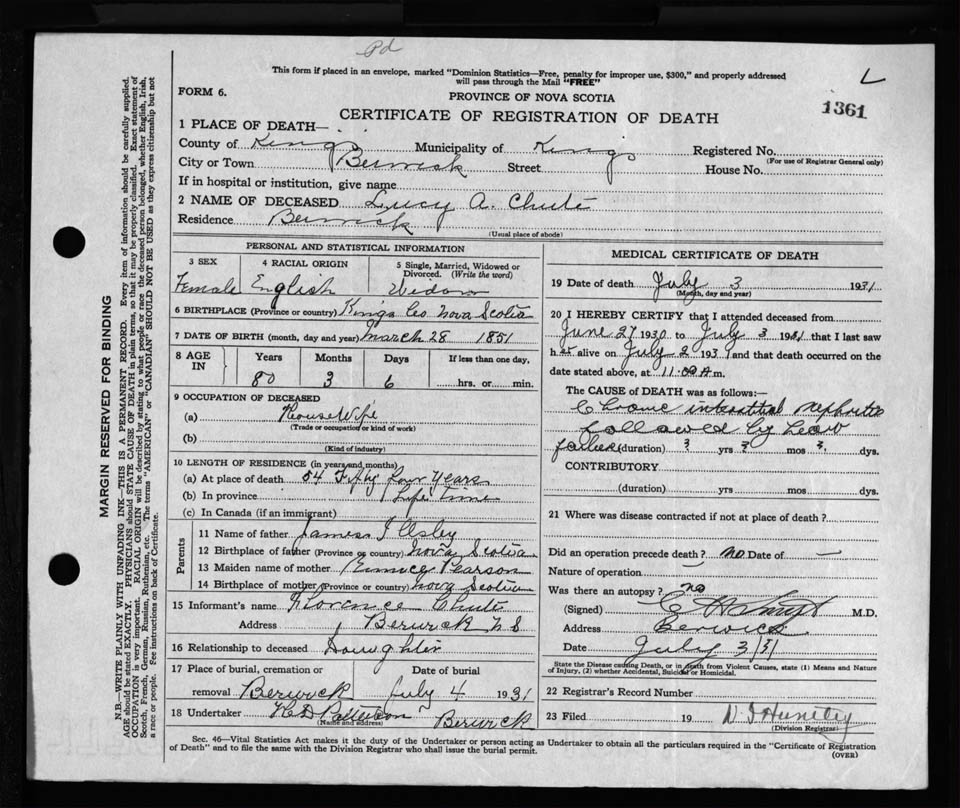 Pd
This form if placed in an envelope, marked "Dominion Statistics—Free, penalty for improper use, $300," and properly addressed
will pass through the Mail "FREE"
L
FORM 6.
PROVINCE OF NOVA SCOTIA
1361
CERTIFICATE OF REGISTRATION OF DEATH
1 PLACE OF DEATH—
County of Kings Municipality of Kings Registered No.
(For use of Registrar General only)
City or Town Berwick Street House No.
If in hospital or institution, give name
2 NAME OF DECEASED Lucy A. Chute
Residence Berwick
(Usual place of abode)
PERSONAL AND STATISTICAL INFORMATION
3 SEX 4 RACIAL ORIGIN 5 Single, Married, Widowed or Divorced. (Write the word)
Female English Widow
6 BIRTHPLACE (Province or country) Kings Co Nova Scotia
7 DATE OF BIRTH (month, day and year) March 28 1851
8 AGE IN Years Months Days If less than one day,
80 3 6 hrs. or min.
9 OCCUPATION OF DECEASED
(a) Housewife
(Trade or occupation or kind of work)
(b)
(Kind of industry)
10 LENGTH OF RESIDENCE (in years and months)
(a) At place of death 54 Fifty four years
(b) In province Life time
(c) In Canada (if an immigrant)
Parents
11 Name of father James Illsley
12 Birthplace of father (Province or country) Nova Scotia
13 Maiden name of mother Eunice Pearson
14 Birthplace of mother (Province or country) Nova Scotia
15 Informant's name Florence Chute
Address Berwick N S
16 Relationship to deceased Daughter
17 Place of burial, cremation or Date of burial
removal Berwick July 4 1931
18 Undertaker Berwick
(Name and address)
MEDICAL CERTIFICATE OF DEATH
19 Date of death July 3 1931
(Month, day and year)
20 I HEREBY CERTIFY that I attended deceased from
June 27 1930 to July 3 1931 that I last saw
her alive on July 2 1931 and that death occurred on
date stated above, at 11.00 A m.
The CAUSE OF DEATH was as follows:
Chronic interstitial nephritis
followed by heart
failure (duration) ? yrs ? mos ? dys.
CONTRIBUTORY
(duration) yrs. mos. dys.
21 Where was disease contracted if not at place of death?
Did an operation precede death? no Date of —
Nature of operation
Was there an autopsy? no
(Signed) M.D.
Address Berwick
Date July 3/31
State the Disease causing Death, or in death from Violent Causes, state (1) Means and Nature
of Injury, (2) whether Accidental, Suicidal or Homicidal.
22 Registrar's Record Number
23 Filed 19
(Division Registrar)
Sec. 46—Vital Statistics Act makes it the duty of the Undertaker or person acting as Undertaker to obtain all the particulars required in the "Certificate of Registration
of Death" and to file the same with the Division Registrar who shall issue the burial permit.
(OVER)
MARGIN RESERVED FOR BINDING
N.B.—WRITE PLAINLY WITH UNFADING INK—THIS IS A PERMANENT RECORD. Every item of information should be carefully supplied.
AGE should be stated EXACTLY. PHYSICIANS should STATE CAUSE OF DEATH in plain terms, so that it may be properly classified. Exact statement of
OCCUPATION is very important. RACIAL ORIGIN will be described by stating to what people or race the deceased person belonged, whether English, Irish,
Scotch, French, German, Russian, Ruthenian, etc. The terms "AMERICAN" or "CANADIAN" SHOULD NOT BE USED as they express citizenship but not
a race or people. See instructions on back of Certificate.